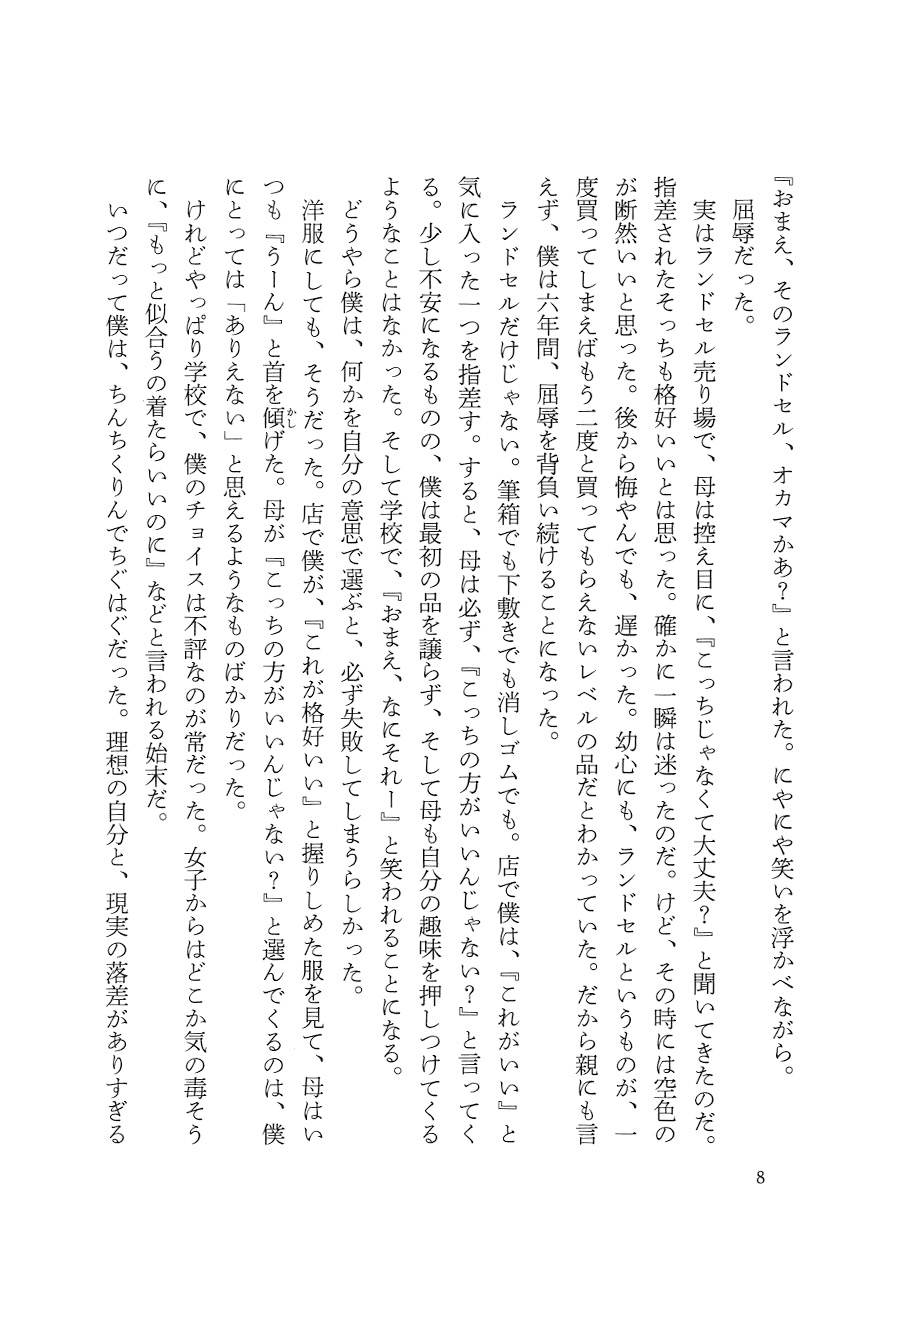 『おまえ、そのランドセル、オカマかあ？』と言われた。にやにや笑いを浮かべながら。
屈辱だった。
実はランドセル売り場で、母は控え目に、『こっちじゃなくて大丈夫？』と聞いてきたのだ。
指差されたそっちも格好いいとは思った。確かに一瞬は迷ったのだ。けど、その時には空色の
が断然いいと思った。後から悔やんでも、遅かった。幼心にも、ランドセルというものが、一
度買ってしまえばもう二度と買ってもらえないレベルの品だとわかっていた。だから親にも言
えず、僕は六年間、屈辱を背負い続けることになった。
ランドセルだけじゃない。筆箱でも下敷きでも消しゴムでも。店で僕は、『これがいい』と
気に入った一つを指差す。すると、母は必ず、『こっちの方がいいんじゃない？』と言ってく
る。少し不安になるものの、僕は最初の品を譲らず、そして母も自分の趣味を押しつけてくる
ようなことはなかった。そして学校で、『おまえ、なにそれー』と笑われることになる。
どうやら僕は、何かを自分の意思で選ぶと、必ず失敗してしまうらしかった。
洋服にしても、そうだった。店で僕が、『これが格好いい』と握りしめた服を見て、母はい
つも『うーん』と首を傾げた。母が『こっちの方がいいんじゃない？』と選んでくるのは、僕
かし
にとっては「ありえない」と思えるようなものばかりだった。
けれどやっぱり学校で、僕のチョイスは不評なのが常だった。女子からはどこか気の毒そう
に、『もっと似合うの着たらいいのに』などと言われる始末だ。
いつだって僕は、ちんちくりんでちぐはぐだった。理想の自分と、現実の落差がありすぎる
8